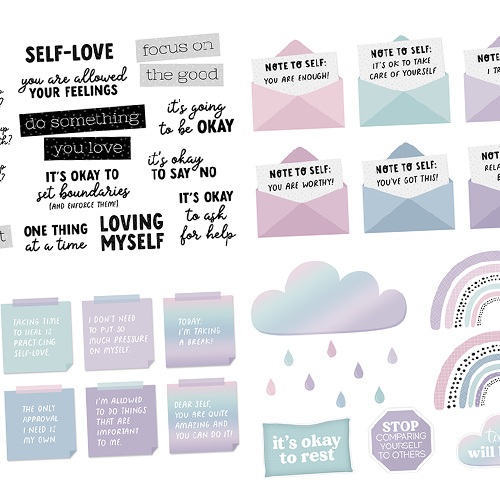 SELF-LOVE
you are allowed
YOUR FEELINGS
focus on
the good
do something
you love
it's going
to be OKAY
it's okay
TO SAY NO
IT'S OKAY TO
set boundaries
(AND ENFORCE THEM)
IT'S OKAY
to ask
for help
ONE THING
at a time
LOVING
MYSELF
NOTE TO SELF:
YOU ARE ENOUGH!
NOTE TO SELF:
IT'S OK TO TAKE
CARE OF YOURSELF
NOTE TO SELF:
YOU ARE WORTHY!
NOTE TO SELF:
YOU'VE GOT THIS!
TAKING TIME
TO HEAL IS
PRACTICING
SELF-LOVE.
I DON'T NEED
TO PUT SO
MUCH PRESSURE
ON MYSELF.
TODAY:
I'M TAKING
A BREAK!
THE ONLY
APPROVAL
I NEED IS
MY OWN.
I'M ALLOWED
TO DO THINGS
THAT ARE
IMPORTANT
TO ME.
DEAR SELF,
YOU ARE QUITE
AMAZING AND
YOU CAN DO IT!
it's okay
to rest
STOP
COMPARING
YOURSELF
TO OTHERS
will